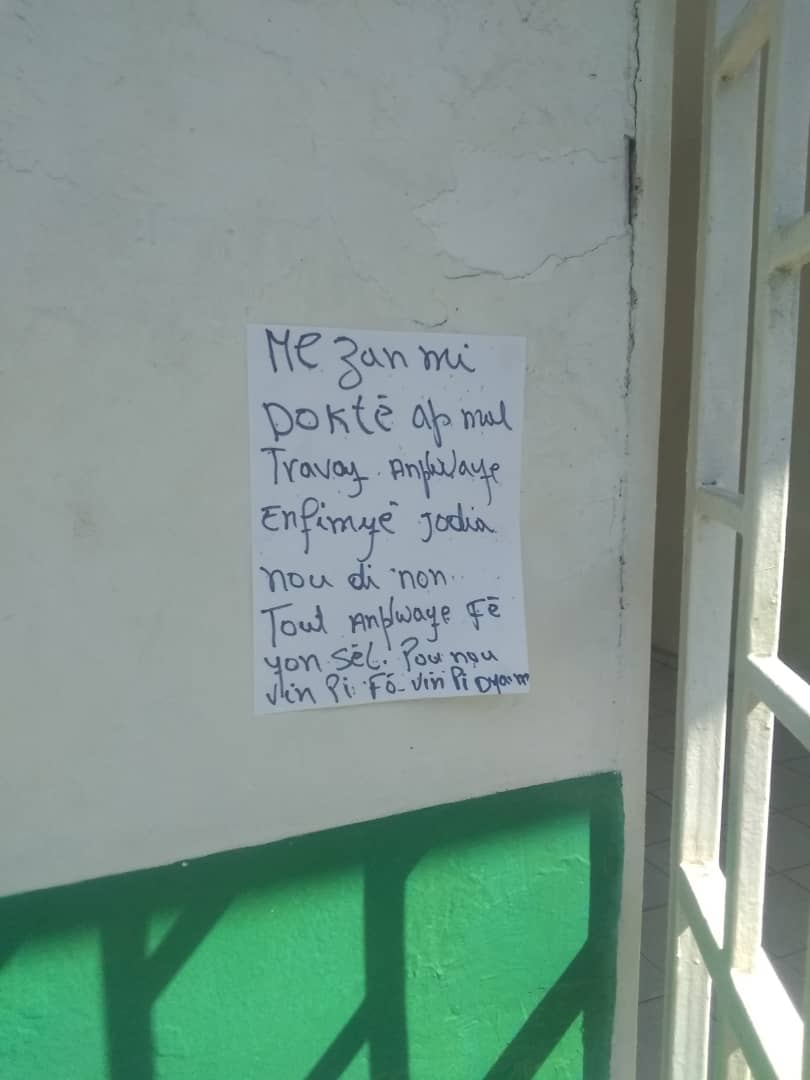 Mezanmi
Doktē ap mal
Travay Anplwaye
Enfimyē Jodia
nou di non..
Tout Anplwaye Fē
yon Sēl. Pou nou
vin Pi Fō- vin Pi Dyanm